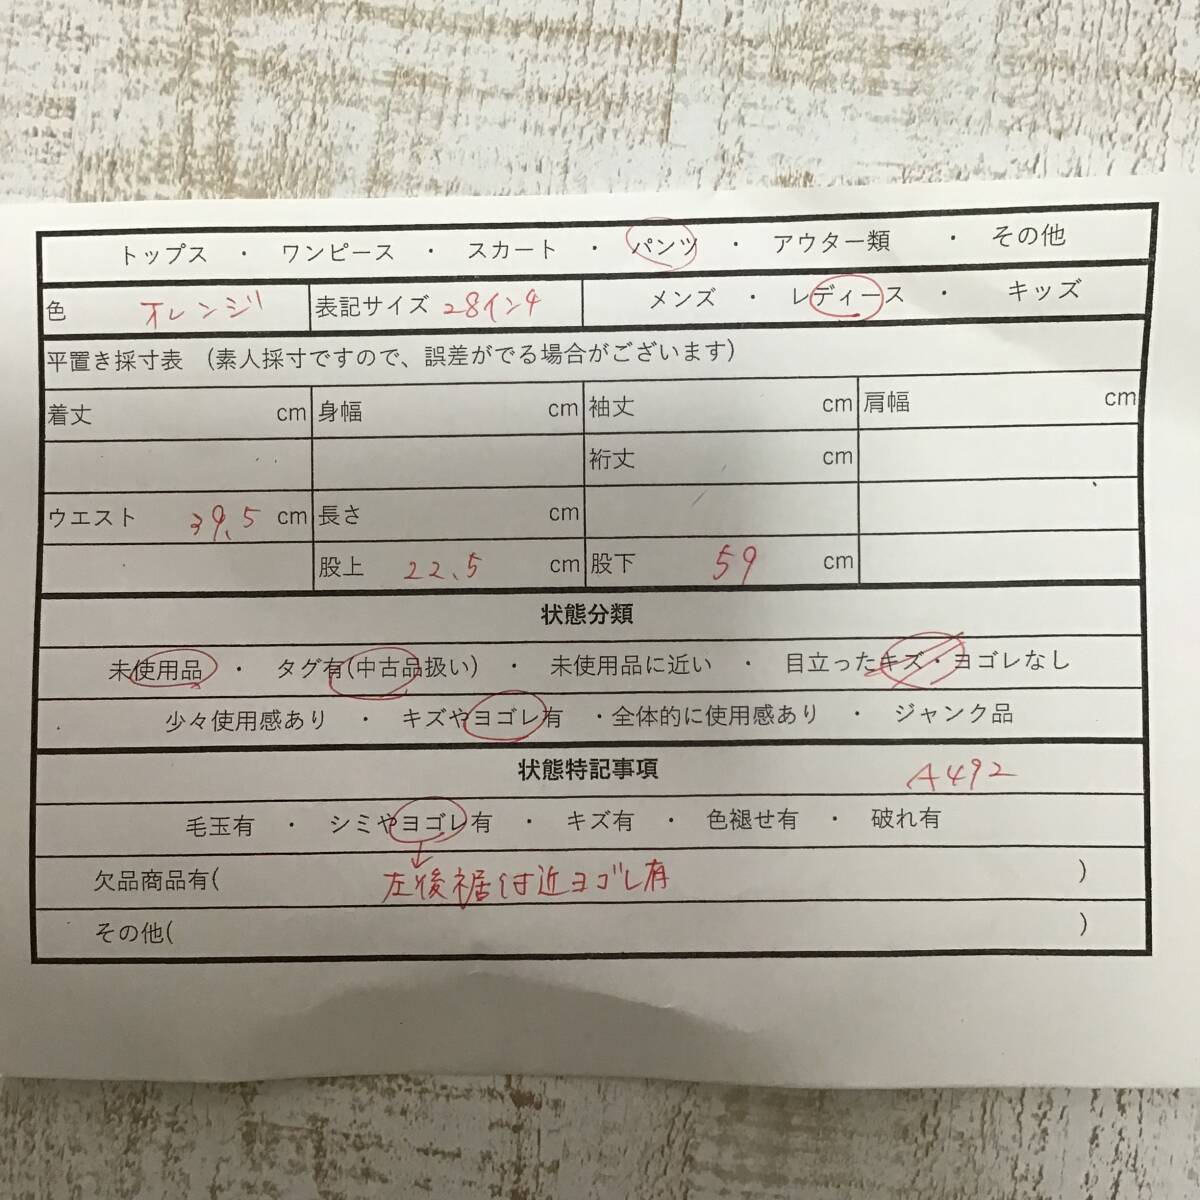 トップス ・ ワンピース ・ スカート ・ パンツ ・ アウター類 ・ その他
色 オレンジ 表記サイズ 28インチ メンズ ・ レディース ・ キッズ
平置き採寸表 (素人採寸ですので、誤差がでる場合がございます)
着丈 cm 身幅 cm 袖丈 cm 肩幅 cm
裄丈 cm
ウエスト 39.5 cm 長さ cm
股上 22.5 cm 股下 59 cm
状態分類
未使用品 ・ タグ有(中古品扱い) ・ 未使用品に近い ・ 目立ったキズ・ヨゴレなし
少々使用感あり ・ キズやヨゴレ有 ・全体的に使用感あり ・ ジャンク品
状態特記事項 A492
毛玉有 ・ シミやヨゴレ有 ・ キズ有 ・ 色褪せ有 ・ 破れ有
欠品商品有( 左後裾付近ヨゴレ有 )
その他( )